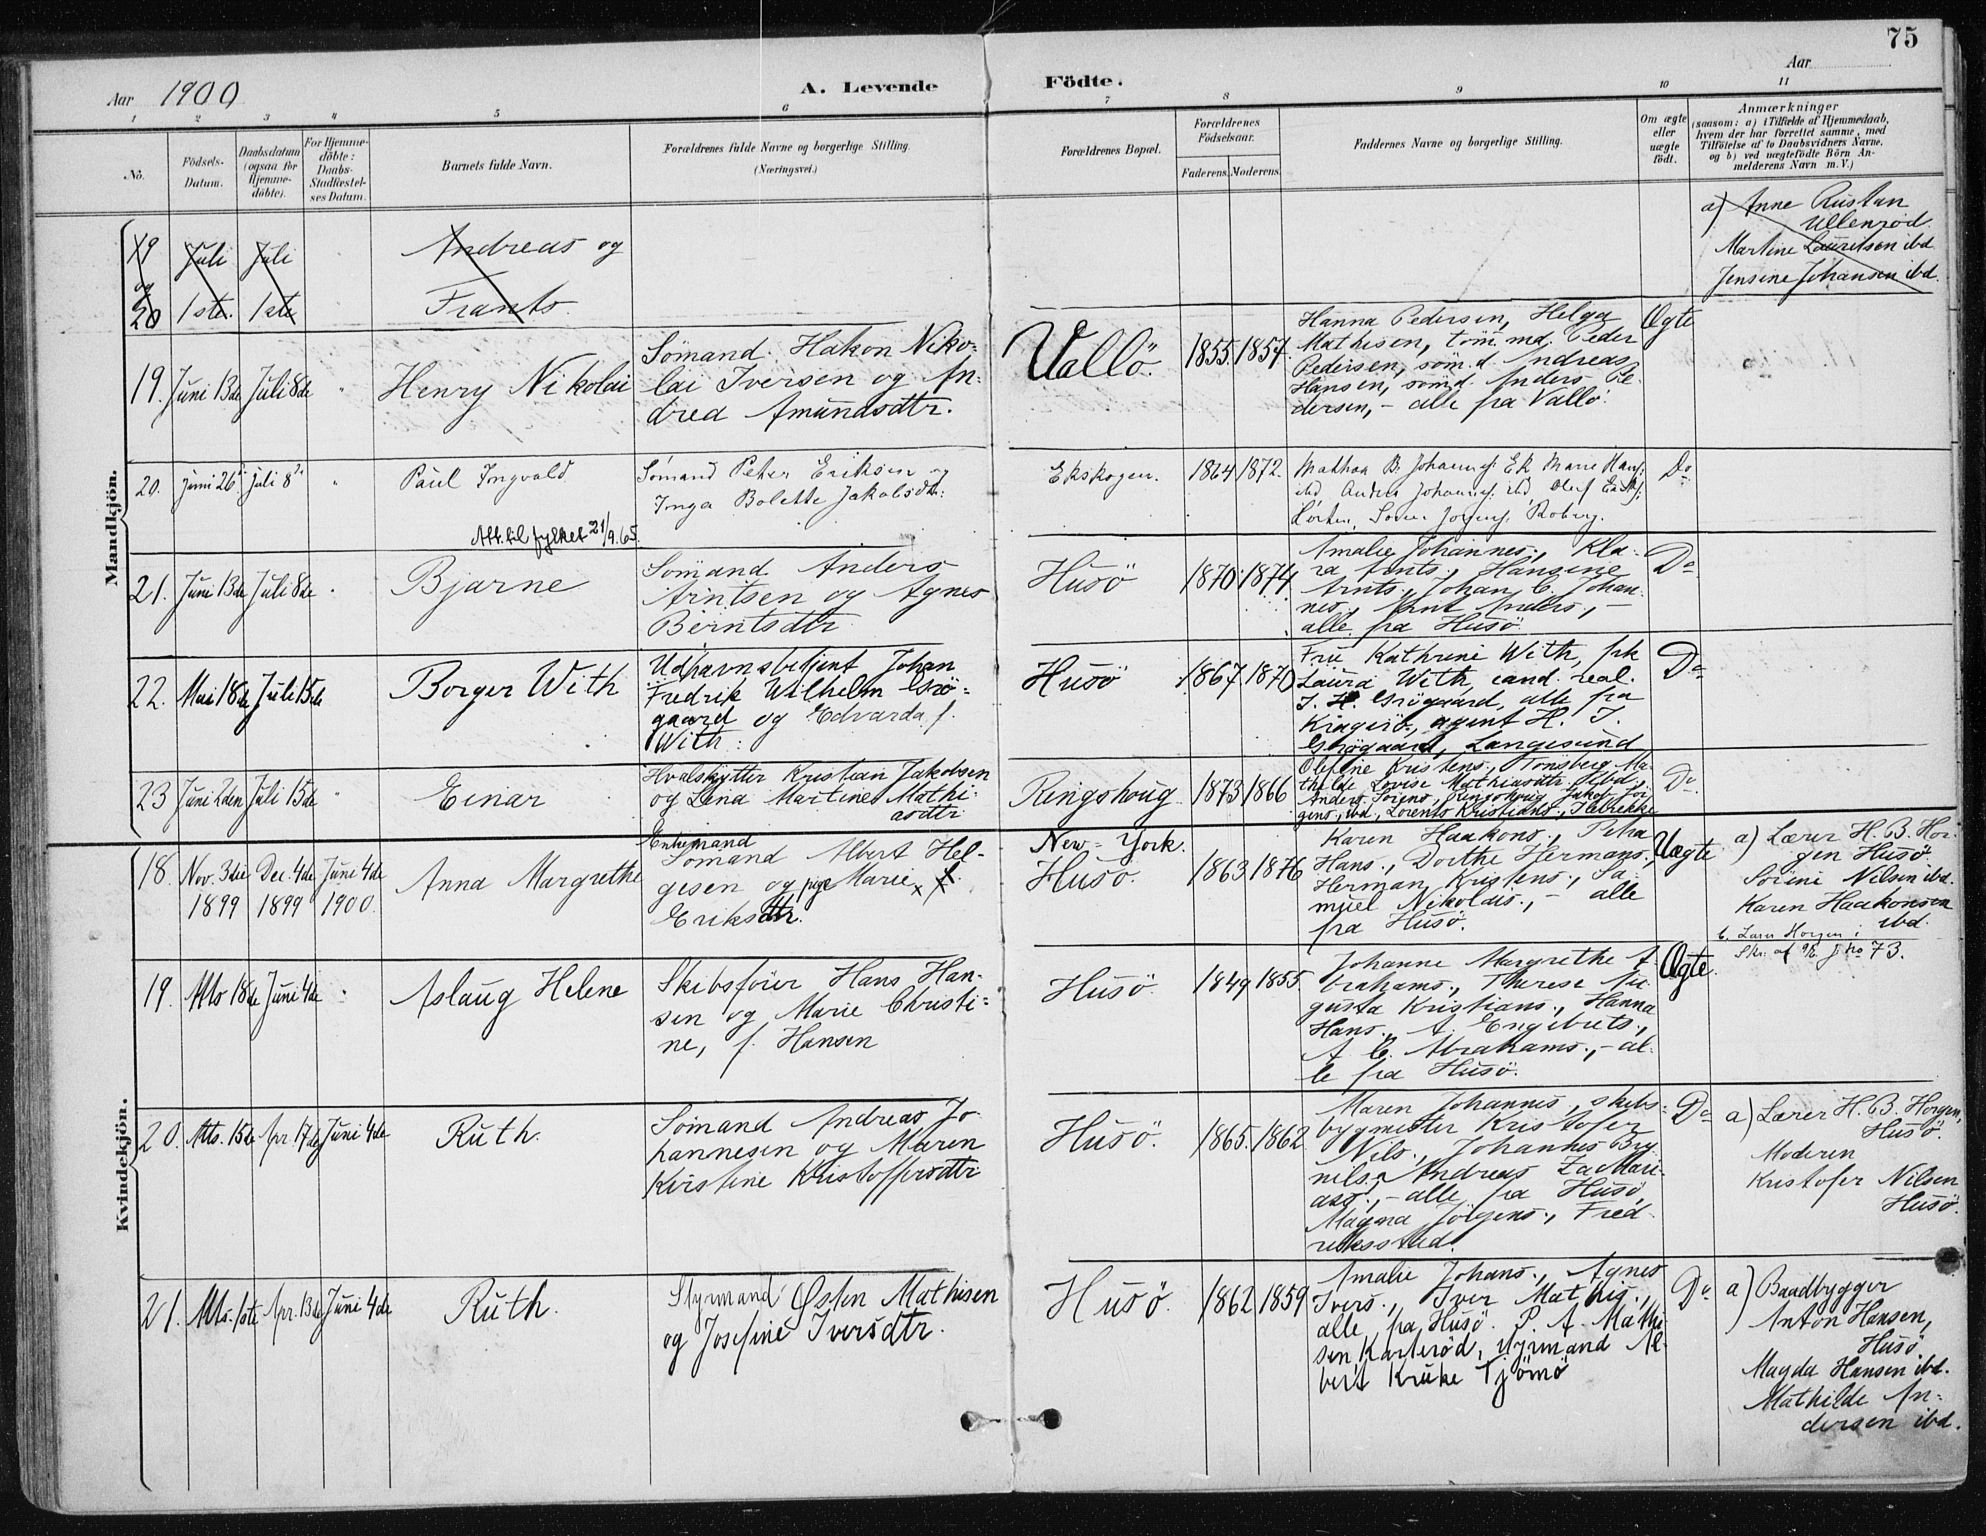 75
Aar 1900
A. Levende Födte.
Aar
1 2 3 4 5 6 7 8 9 10 11
No.
Födsels-
Datum.
Daabsdatum
(ogsaa for
Hjemme-
döbte).
For Hjemme-
döbte:
Daabs-
Stadfæstel-
ses Datum.
Barnets fulde Navn.
Forældrenes fulde Navne og borgerlige Stilling.
(Næringsvei.)
Forældrenes Bopæl.
Forældrenes
Födselsaar.
Faderens. Moderens.
Faddernes Navne og borgerlige Stilling.
Om ægte
eller
uægte
födt.
Anmærkninger
(saasom: a) i Tilfælde af Hjemmedaab,
hvem der har forrettet samme, med
Tilföielse af to Daabsvidners Navne,
og b) ved uægtefödte Börn An-
melderens Navn m. V.)
Mandkjön.
19
og
20
Juli
1ste.
Juli
1ste
Andreas og
Frants.
a) Anne Rustan
Ullenrød.
Martine Lauritsen ibd.
Jensine Johansen ibd.
19. Juni 13de Juli 8de " Henry Nikolai
Sömand Hakon Niko-
lai Iversen og An-
drea Amundsdtr.
Vallö. 1855. 1857.
Hanna Pedersen, Helga
Mathisen, töm.md. Peder
Pedersen, söm.d. Andreas
Hansen, söm.d. Anders Pe-
dersen, - alle fra Vallö.
Ægte
20. Juni 26 Juli 8 " Paul Ingvald
Sömand Peter Eriksen og
Inga Bolette Jakobsdtr:
Ekskogen. 1864 1872.
Do
Att. til fylket 21/9.65.
21. Juni 13de Juli 8de Bjarne
Sömand Anders
Arntsen og Agnes
Berntsdtr
Husö 1870. 1874.
Amalie Johannes., Kla-
ra Arnts., Hansine
Arnts., Johan C. Johan-
nes., Arnt Anders., -
alle fra Husö
Do
22. Mai 18de Juli 15de Borger With
Udhavnsbetjent Johan
Fredrik Wilhelm Grö-
gaard og Edvarda f.
With.
Husö 1867. 1870
Fru Kathrine With, frk
Laura With, cand. real.
J. H. Grögaard, alle fra
Kragerö, agent H. J.
Grögaard, Langesund
Do
23 Juni 2den Juli 15de " Einar
Hvalskytter Kristian Jakobsen
og Lina Martine Mathi-
asdtr
Ringshoug 1873 1866
Olefine Kristens., Tönsberg, Ma-
thilde Lovise Mathiasdtr ibd.,
Anders Sörens., Ringshoug, Jakob Jör-
gens., ibd., Lorents Kristians.,
Do
Kvindekjön.
18. Nov. 3die
1899
Dec. 4de
1899
Juni 4de
1900.
Anna Margrethe
Enkemand
Sömand Albert Hel-
gesen og pige Marie
Eriksdtr.
New-York.
Husö. 1863 1876
Karen Haakons., Petra
Hans., Dorthe Hermans.,
Herman Kristens., Sa-
muel Nikolais., - alle
fra Husö.
Uægte
a) Lærer H. B. Hor-
gen Husö.
Sörine Nilsen ibd.
Karen Haakonsen
ibd.
b. Lærer Horgen i
Skr. af 9/6 J no 73.
19. Mts 18de Juni 4de " Aslaug Helene
Skibsförer Hans Han-
sen og Marie Christi-
ne, f. Hansen
Husö. 1849 1855
Johanne Margrethe A-
brahams., Therese Au-
gusta Kristians., Hanna
Hans., A. Engebrets.,
A. C. Abrahams., - al-
le fra Husö.
Ægte.
20. Mts. 15de Apr. 17de Juni 4de Ruth.
Sömand Andreas Jo-
hannesen og Maren
Kirstine Kristoffersdtr
Husö. 1865. 1862.
Maren Johannes., skibs-
bygmester Kristofer
Nils., Johannes Bry-
nils., Andreas Zachari-
as., - alle fra Husö,
Magna Jörgens., Fred-
riksstad.
Do
a) Lærer H. B. Horgen,
Husö.
Moderen
Kristofer Nilsen
Husö.
21. Mts. 1ste Apr. 13de Juni 4de Ruth.
Styrmand Östen Mathisen
og Josefine Iversdtr.
Husö. 1862 1859
Amalie Johans., Agnes
Ivers., Iver Mathis.,
alle fra Husö. P. A. Mathi-
sen, Karlsröd, styrmand Al-
bert Kruke Tjömö
Do
a) Baadbygger
Anton Hansen,
Husö.
Magda Hansen ibd.
Mathilde An-
dersen ibd.